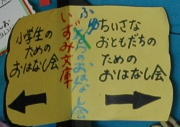 小学生の
ための
おはなし会
いずみ文庫
ふゆのおはなし会
ちいさな
おともだちの
ための
おはなし会